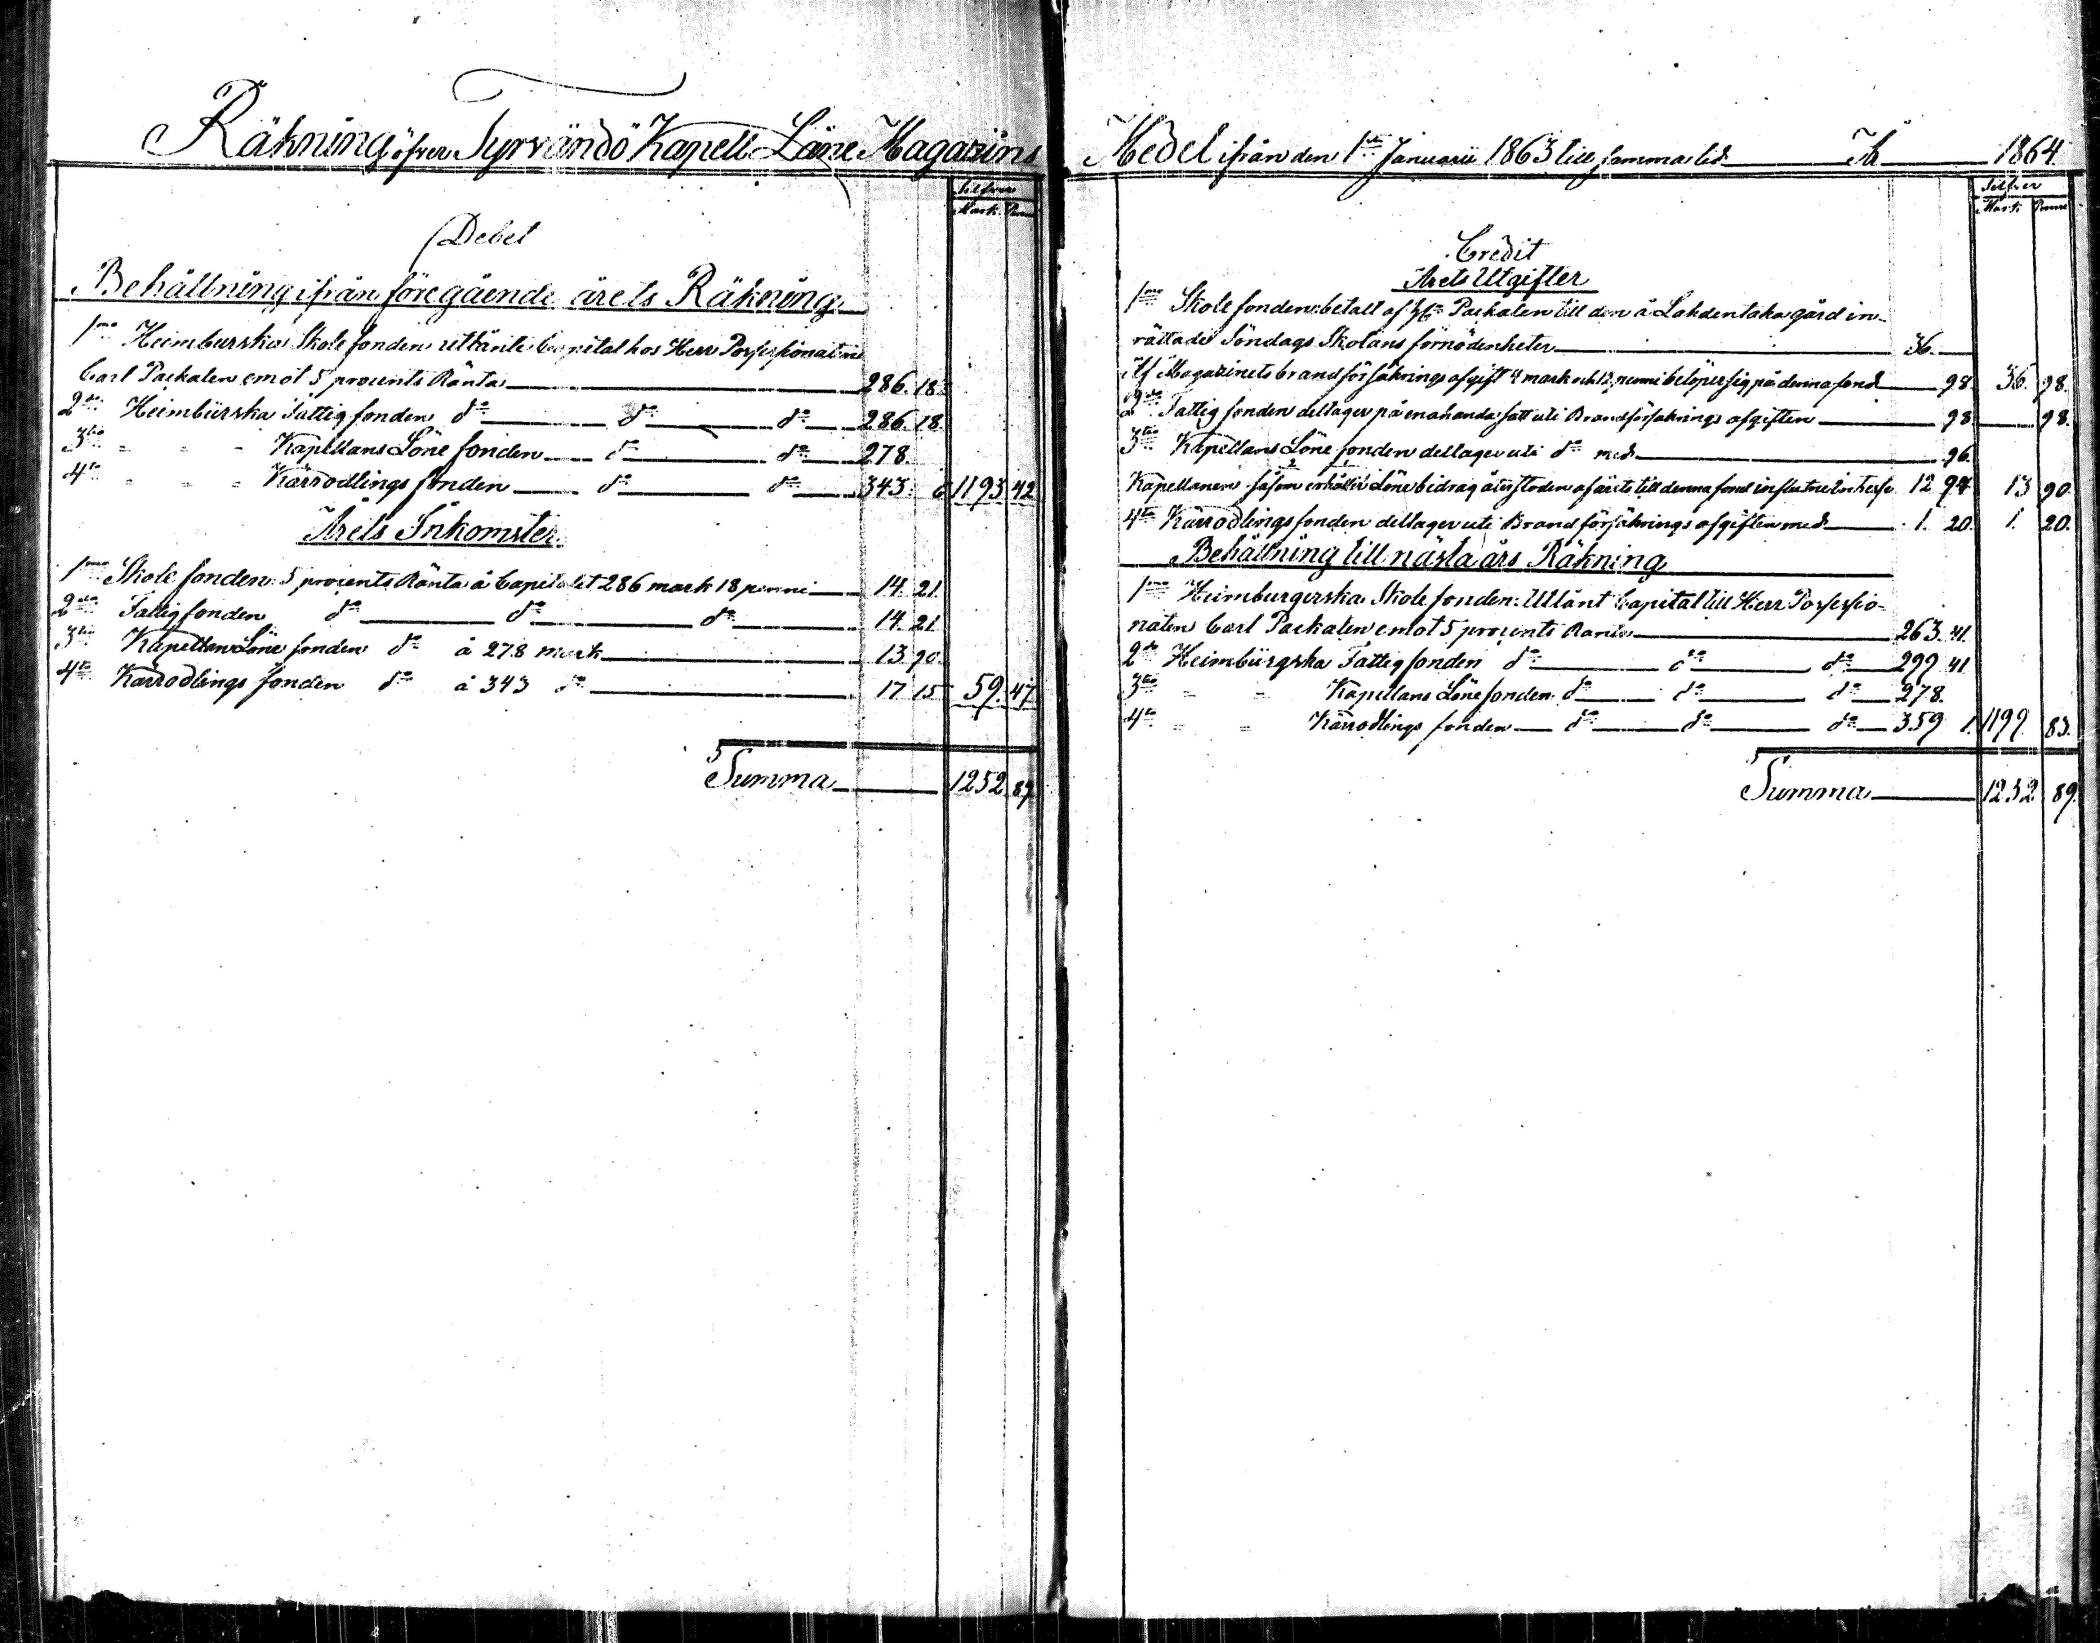 Räkning öfver Tyrvändö Kapells Låne Magazins
Silfver
Mark Penni
Debet
Behållning ifrån föregående årets Räkning
1mo Heimburska Skole fonden utlånte Capital hos Herr Possessionaten
Carl Packalen emot 5 procents Ränta 286. 18.
2do Heimburska Fattig fonden do do do 286. 18.
3tio " " Kapellans Löne fonden do do 278.
4to " " Kärrodlings fonden do do 343. 6 1193 42
Årets Inkomster
1mo Skole fonden 5 procents Ränta å Capitalet 286 mark 18 penni 14. 21.
2do Fattig fonden do do do 14. 21.
3tio Kapellans Löne fonden do å 278 mark 13. 90.
4to Kärrodlings fonden do å 343 do 17 15 59. 47.
Summa 1252. 89.
Medel ifrån den 1sta Januarii 1863 till samma tid År 1864.
Silfver
Mark Penni
Credit
Årets Utgifter
1mo Skole fonden: betalt af Packalen till den å Lahdentaka gård in-
rättade Söndags Skolans förnödenheter 36.
Af Magazinets brandförsäkrings afgift 4 mark och 12 penni belöper sig på denna fond 98. 36. 98.
2do Fattig fonden deltager på enahanda satt uti Brandförsäkrings afgiften 98. 98.
3tio Kapellans Löne fonden deltager uti do med 96.
Kapellanen såsom Löne bidrag återstoden af årets till denna fond influtne Intresse 12 94 13 90.
4to Kärrodlings fonden deltager uti Brandförsäkrings afgiften med 1. 20. 1. 20.
Behållning till nästa års Räkning
1mo Heimburgerska Skole fonden: Utlånt Capital till Herr Possessio-
naten Carl Packalen emot 5 procents Ränta 263. 41.
2do Heimburgska Fattig fonden do do do 299 41
3tio " " Kapellans Löne fonden do do do 278.
4to " " Kärrodlings fonden do do do 359 1. 1199. 83.
Summa 1252 89.